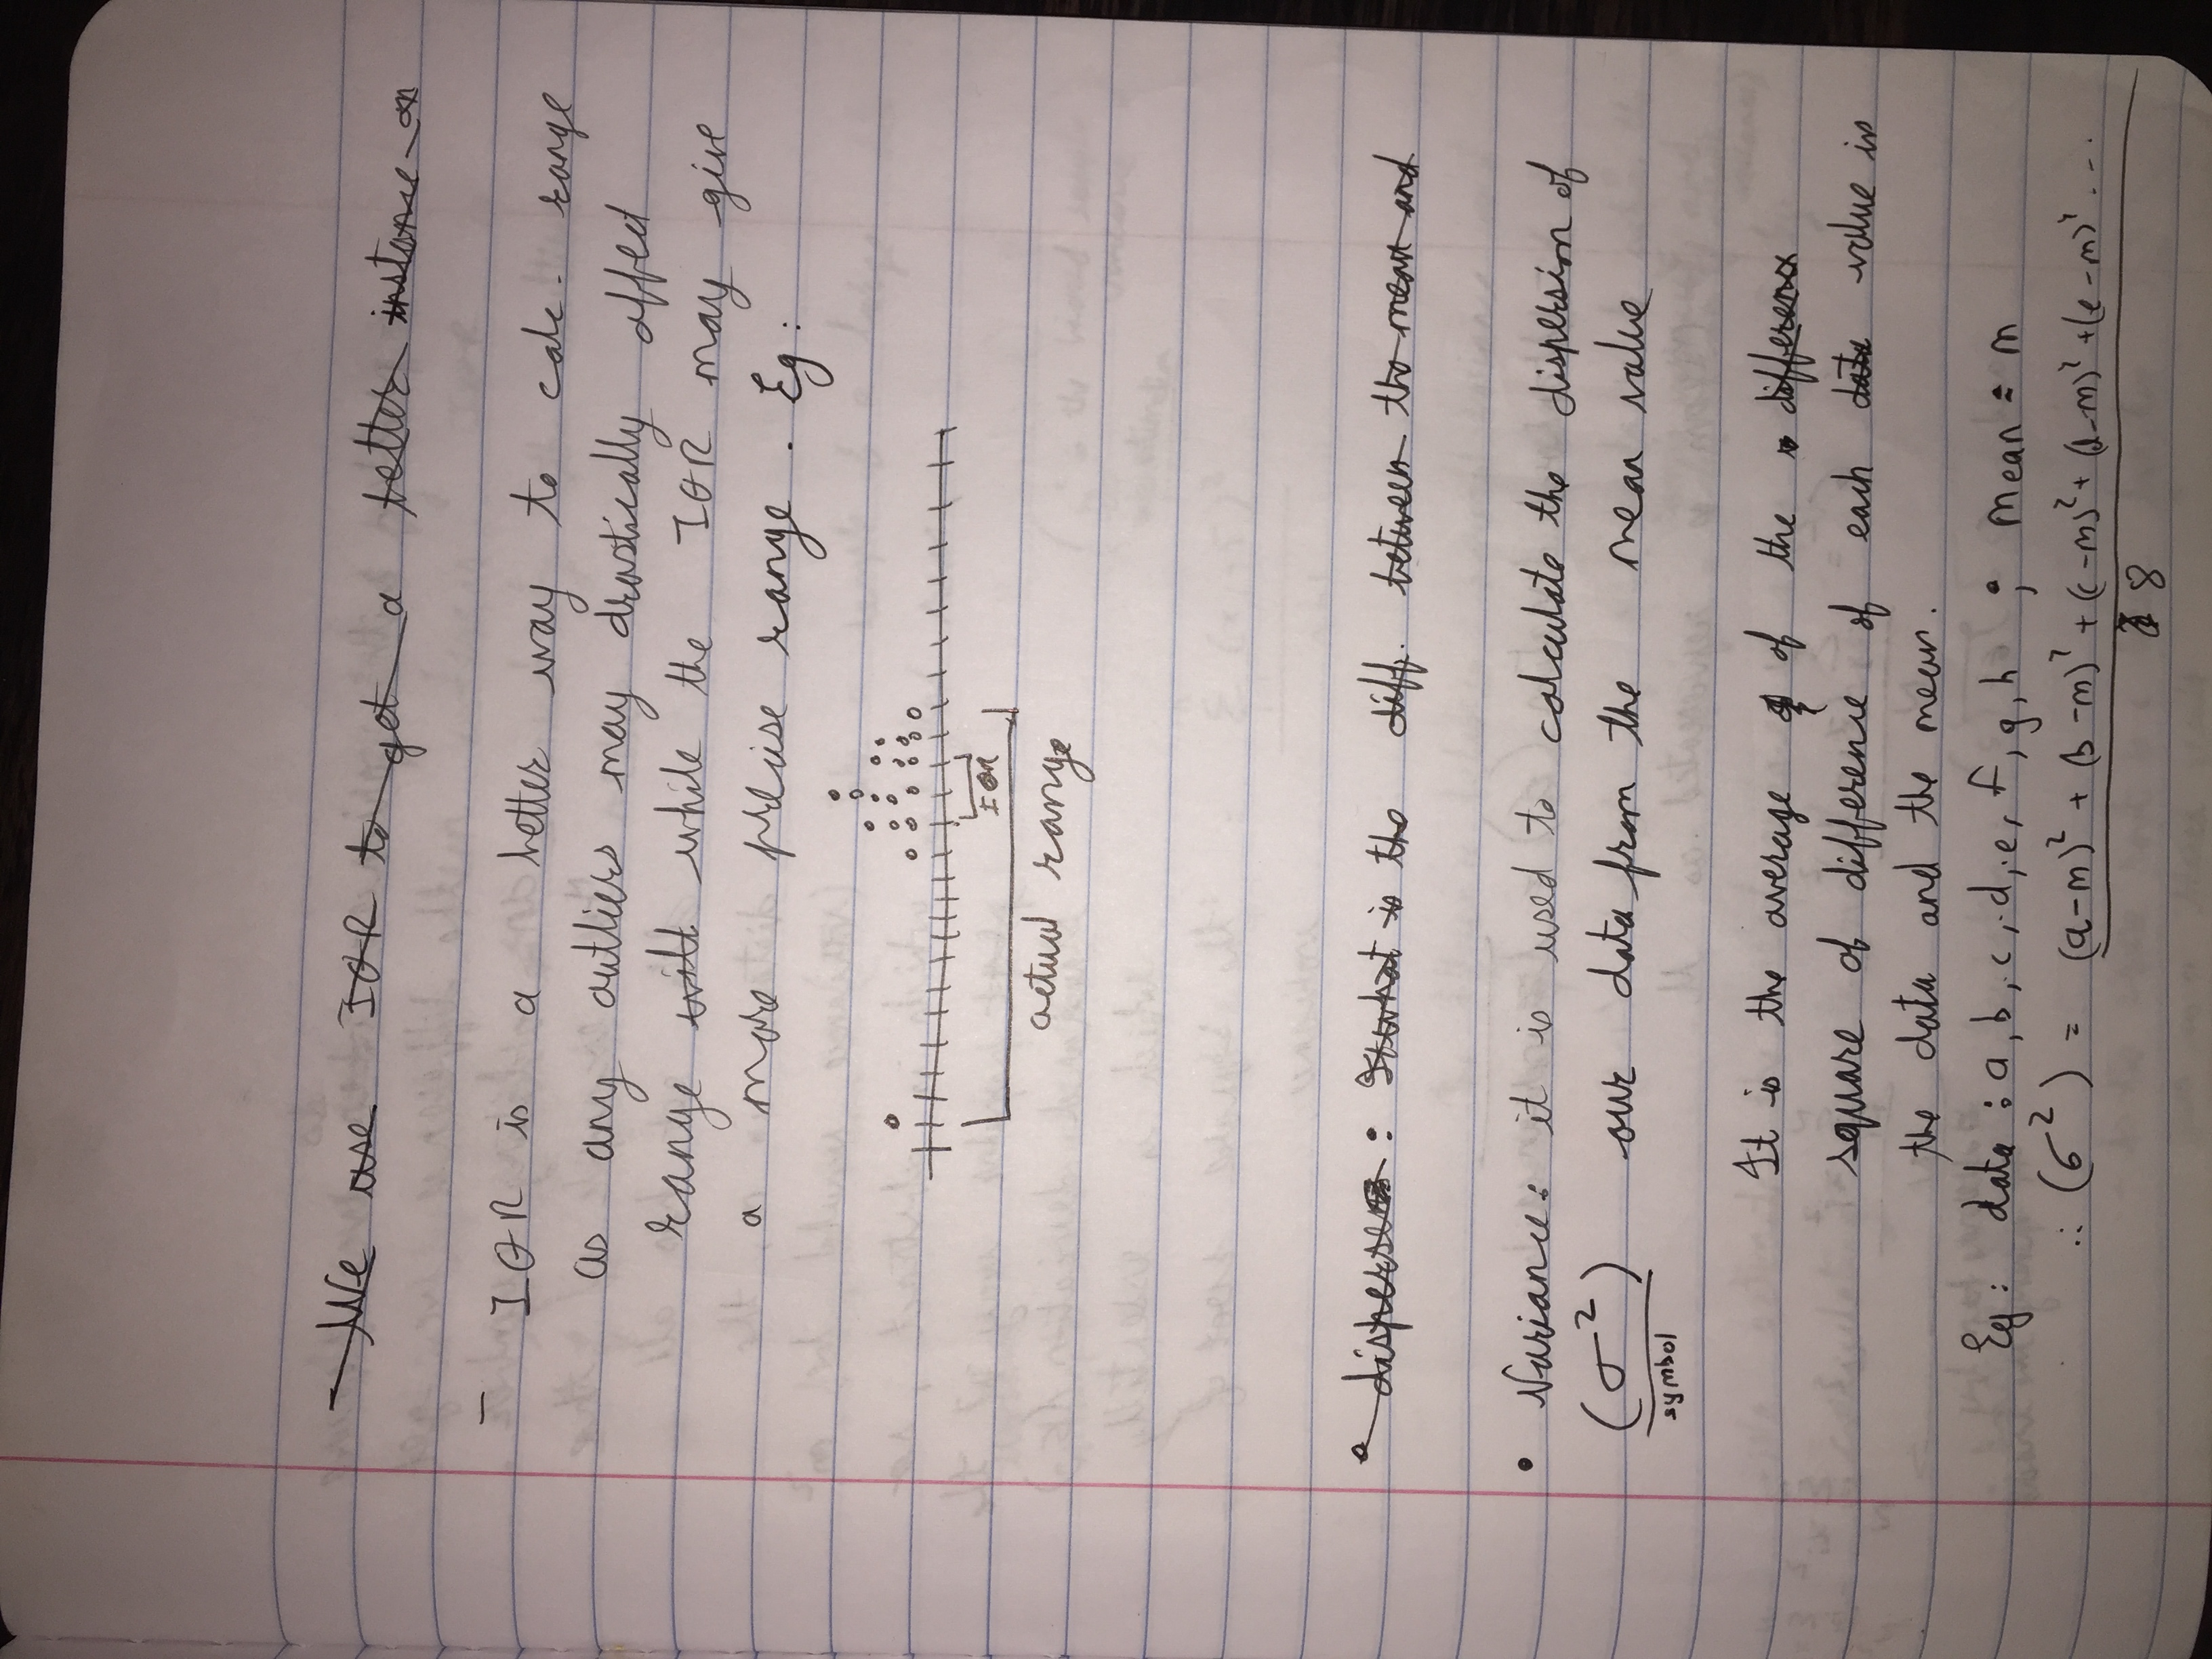 - We use IQR to get a better instance on
- IQR is a better way to calc. range
as any outliers may drastically affect
range will while the IQR may give
a more precise range. Eg:
IQR
actual range
disperse : what is the diff. between the mean and
• Variance: it is used to calculate the dispersion of
(σ²) our data from the mean value
symbol
It is the average of the difference
square of difference of each data value in
the data and the mean.
Eg: data : a, b, c, d, e, f, g, h ; mean = m
∴ (σ²) = (a-m)² + (b-m)² + (c-m)² + (d-m)² + (e-m)² ...
8